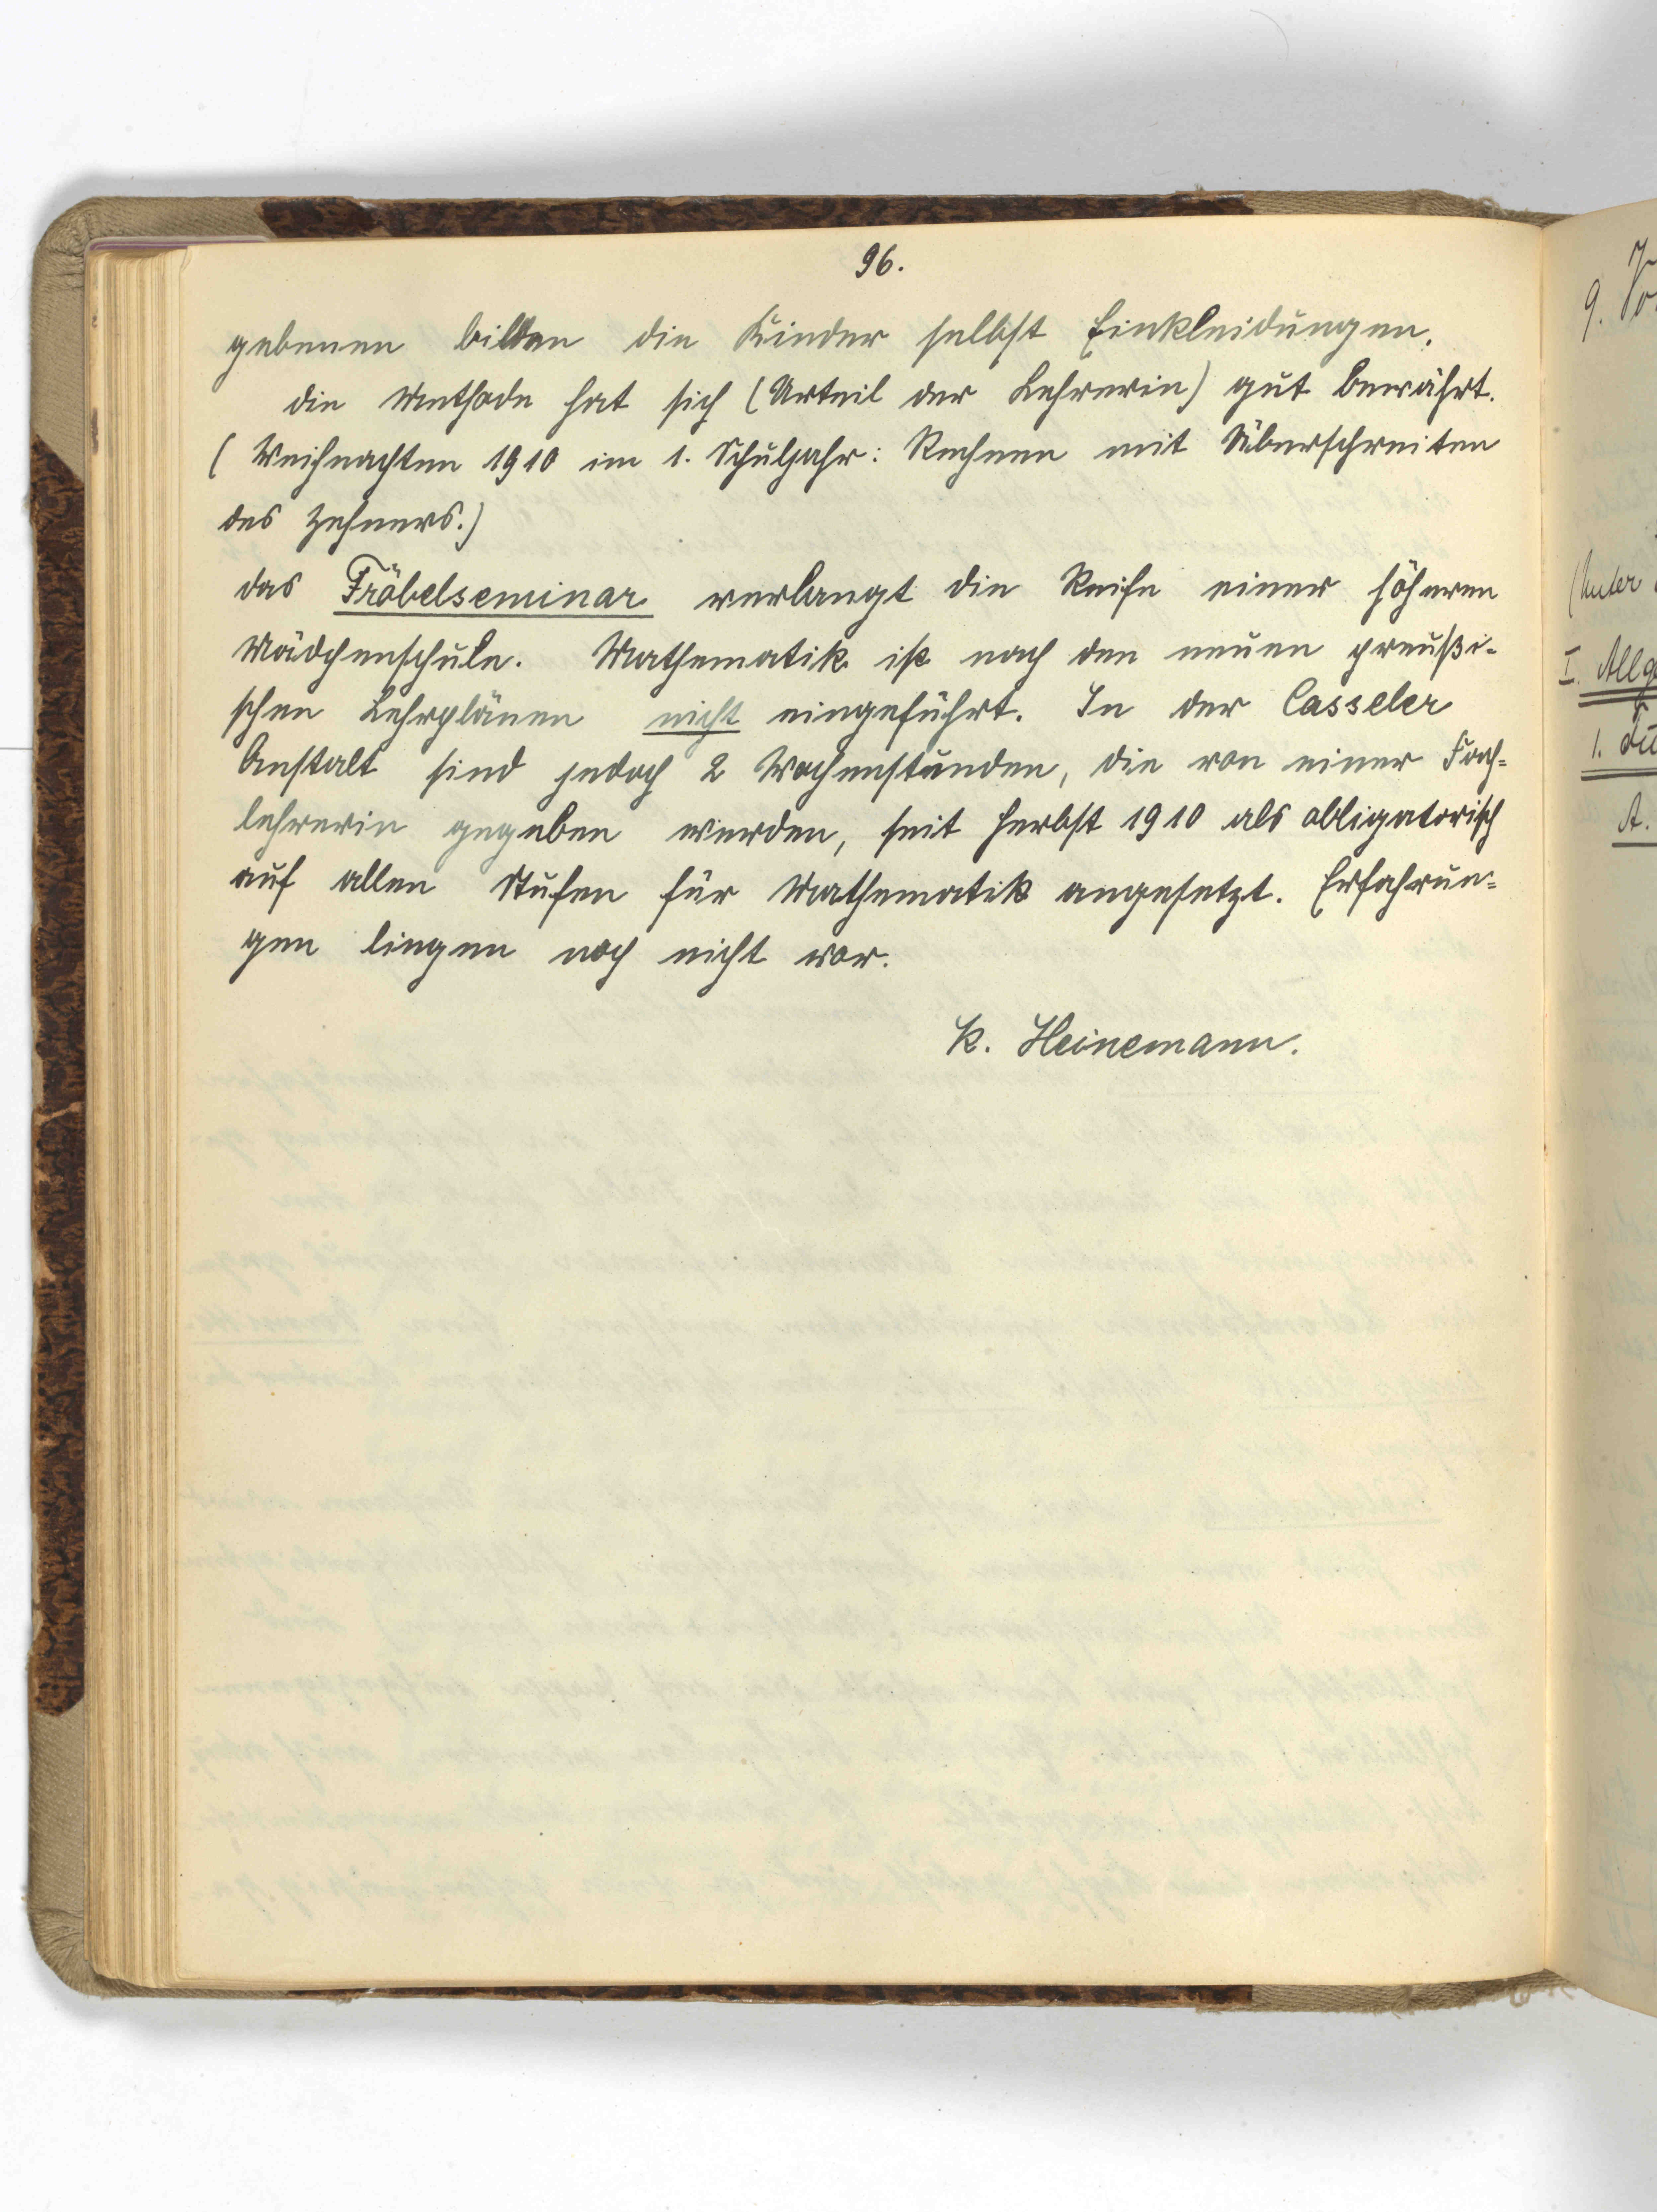 96.
gebenen bilden die Kinder selbst Einkleidungen.
die Methode hat sich (Urteil der Lehrerin) gut bewährt.
(Weihnachten 1910 im 1. Schuljahr: Rechnen mit Überschreiten
des Zehners.)
das Fröbelseminar verlangt die Reife einer höheren
Mädchenschule. Mathematik ist nach den neuen preußi-
schen Lehrplänen nicht eingeführt. In der Casseler
Anstalt sind jedoch 2 Wochenstunden, die von einer Fach-
lehrerin gegeben werden, seit Herbst 1910 als obligatorisch
auf allen Stufen für Mathematik angesetzt. Erfahrun-
gen liegen noch nicht vor.
K. Heinemann.
9. Vo
(Unter
I. Allg
1.
A.